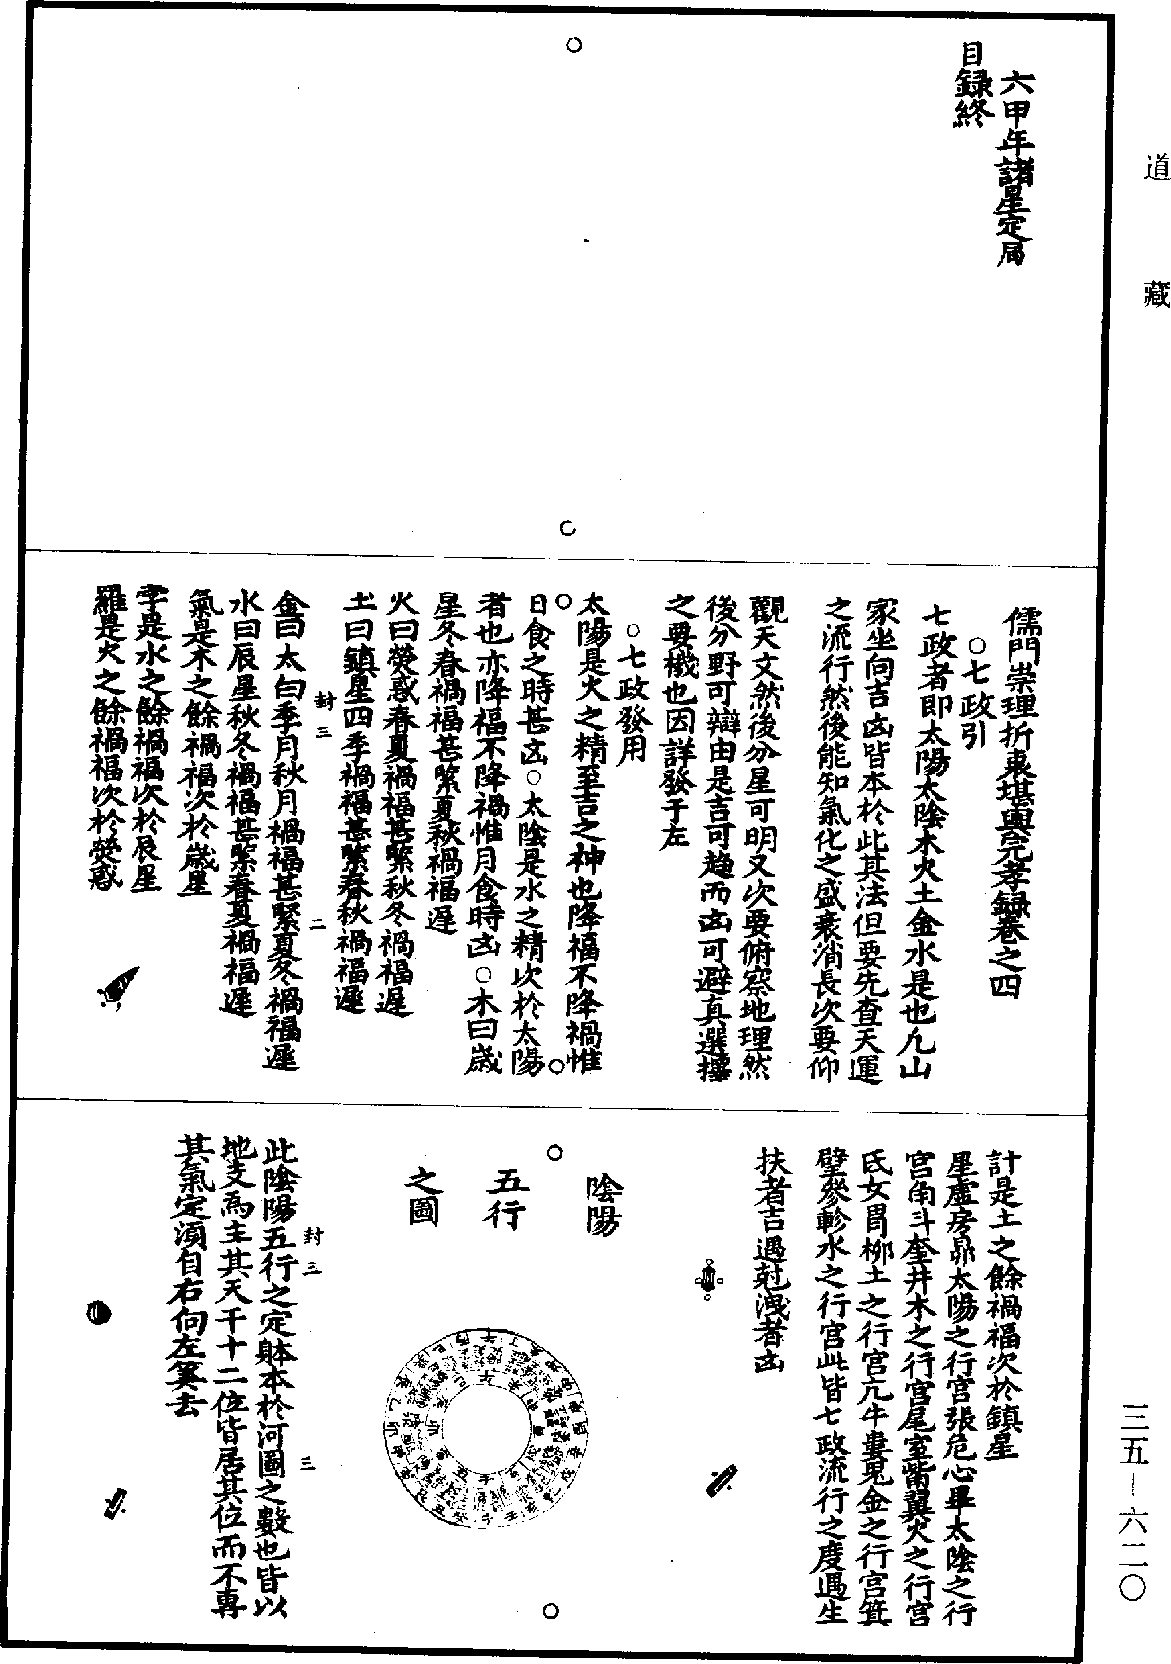 道藏
六甲年諸星定局
目録終
儒門崇理折衷堪輿完孝録卷之四
○七政引
七政者即太陽太陰木火土金水是也凢山
家坐向吉凶皆本於此其法但要先查天運
之流行然後能知氣化之盛衰消長次要仰
觀天文然後分星可明又次要俯察地理然
後分野可辯由是吉可趨而凶可避真選擇
之要機也因詳發于左
○七政發用
太陽是火之精至吉之神也降福不降禍惟
日食之時甚凶○太陰是水之精次於太陽
者也亦降福不降禍惟月食時凶○木曰歲
星冬春禍福甚緊夏秋禍福遲
火曰熒惑春夏禍福甚緊秋冬禍福遲
土曰鎮星四季禍福甚緊春秋禍福遲
封三
二
金曰太白季月秋月禍福甚緊夏冬禍福遲
水曰辰星秋冬禍福甚緊春夏禍福遲
氣是木之餘禍福次於歲星
孛是水之餘禍福次於辰星
羅是火之餘禍福次於熒惑
計是土之餘禍福次於鎮星
星虛房昴太陽之行宮張危心畢太陰之行
宮角斗奎井木之行宮尾室觜翼火之行宮
氐女胃柳土之行宮亢牛婁鬼金之行宮箕
壁參軫水之行宮此皆七政流行之度遇生
扶者吉遇尅洩者凶
陰陽
五行
之圖
封三
三
此陰陽五行之定躰本於河圖之數也皆以
地支為主其天干十二位皆居其位而不專
其氣定須自右向左筭去
三五—六二〇